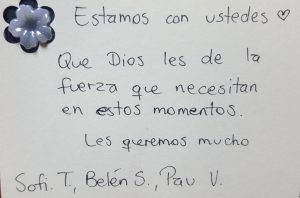 Estamos con ustedes ♡
Que Dios les de la
fuerza que necesitan
en estos momentos.
Les queremos mucho
Sofi. T., Belén S., Pau V.